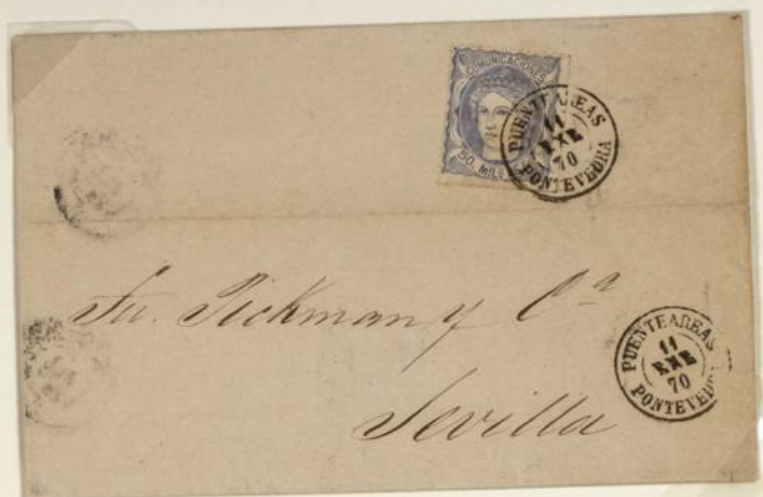 COMUNICACIONES
50. MILS
PUENTEAREAS
11
ENE
70
PONTEVEDRA
Pickman y Cª
Sevilla
PUENTEAREAS
11
ENE
70
PONTEVEDRA